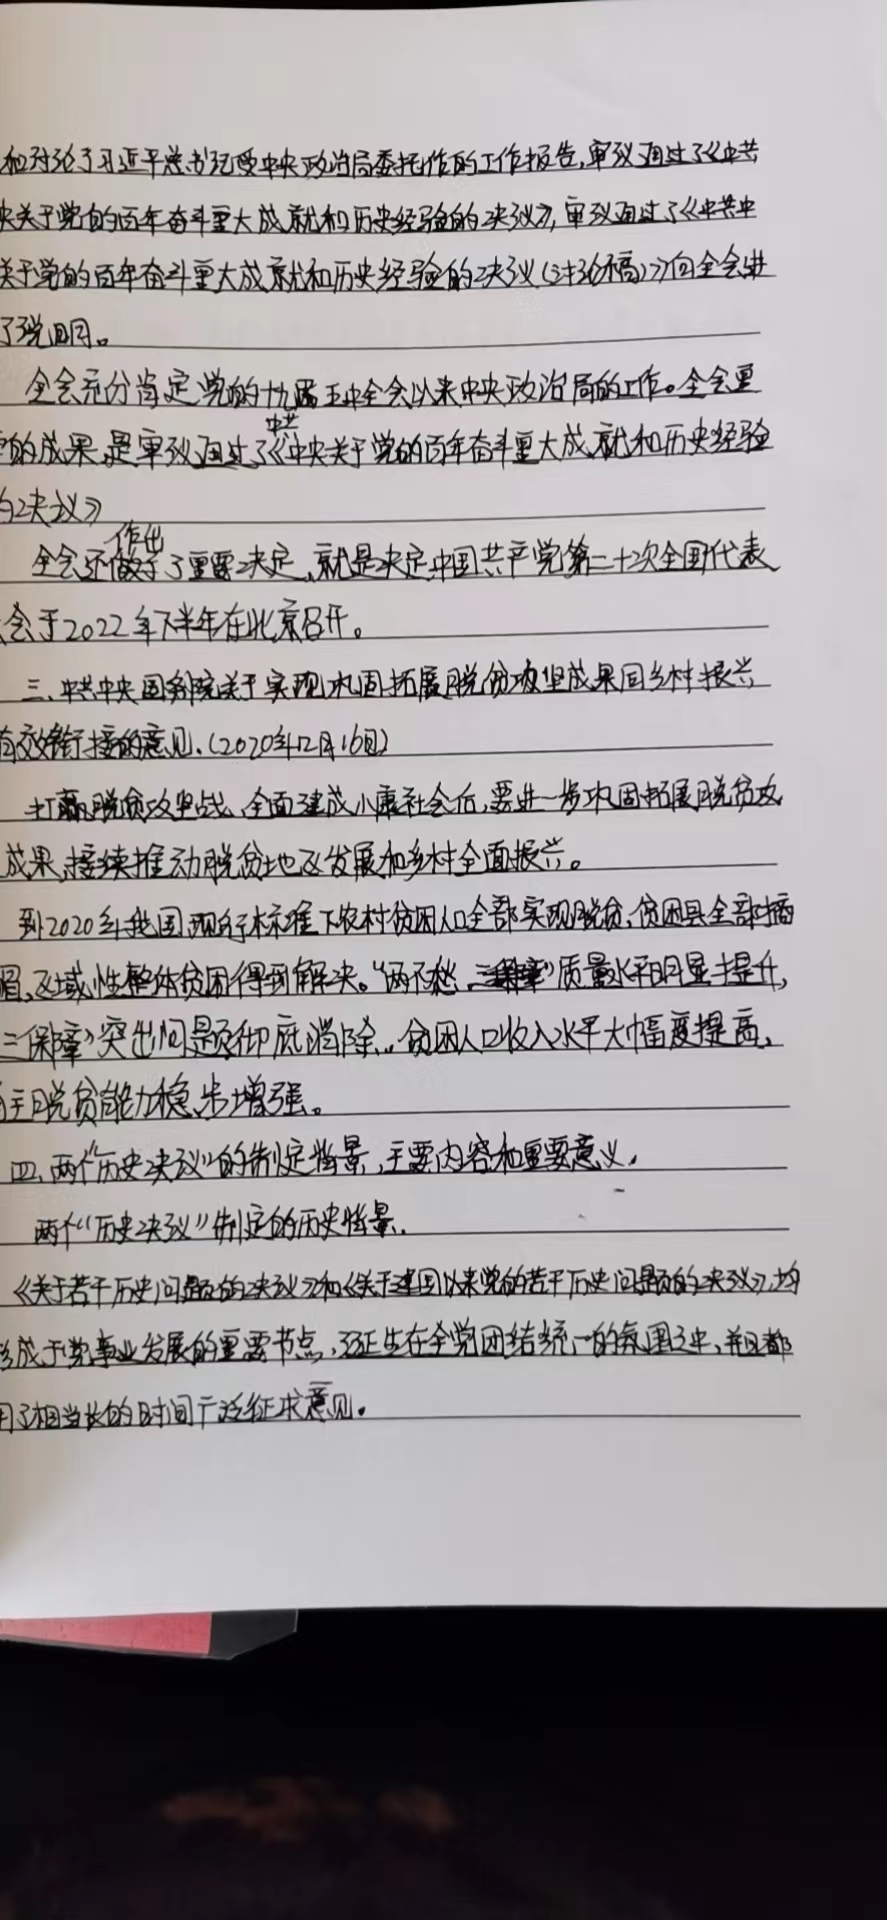 和讨论了习近平总书记受中央政治局委托作的工作报告,审议通过了《中共
央关于党的百年奋斗重大成就和历史经验的决议》,审议通过了《中共中
关于党的百年奋斗重大成就和历史经验的决议(讨论稿)》向全会进
了说明。
全会充分肯定党的十九届五中全会以来中央政治局的工作。全会重
的成果,是审议通过了《中共中央关于党的百年奋斗重大成就和历史经验
的决议》
全会还作出了重要决定,就是决定中国共产党第二十次全国代表
会于2022年下半年在北京召开。
三、中共中央国务院关于实现巩固拓展脱贫攻坚成果同乡村振兴
有效衔接的意见.(2020年12月16日)
打赢脱贫攻坚战、全面建成小康社会后,要进一步巩固拓展脱贫攻
成果,接续推动脱贫地区发展和乡村全面振兴。
到2020年我国现行标准下农村贫困人口全部实现脱贫、贫困县全部摘
帽、区域性整体贫困得到解决。“两不愁”质量水平明显提升,
三保障”突出问题彻底消除。贫困人口收入水平大幅度提高,
自主脱贫能力稳步增强。
四、两个“历史决议”的制定背景,主要内容和重要意义.
两个“历史决议”制定的历史背景.
《关于若干历史问题的决议》和《关于建国以来党的若干历史问题的决议》,均
形成于党事业发展的重要节点,诞生在全党团结统一的氛围之中,并且都
用了相当长的时间广泛征求意见.